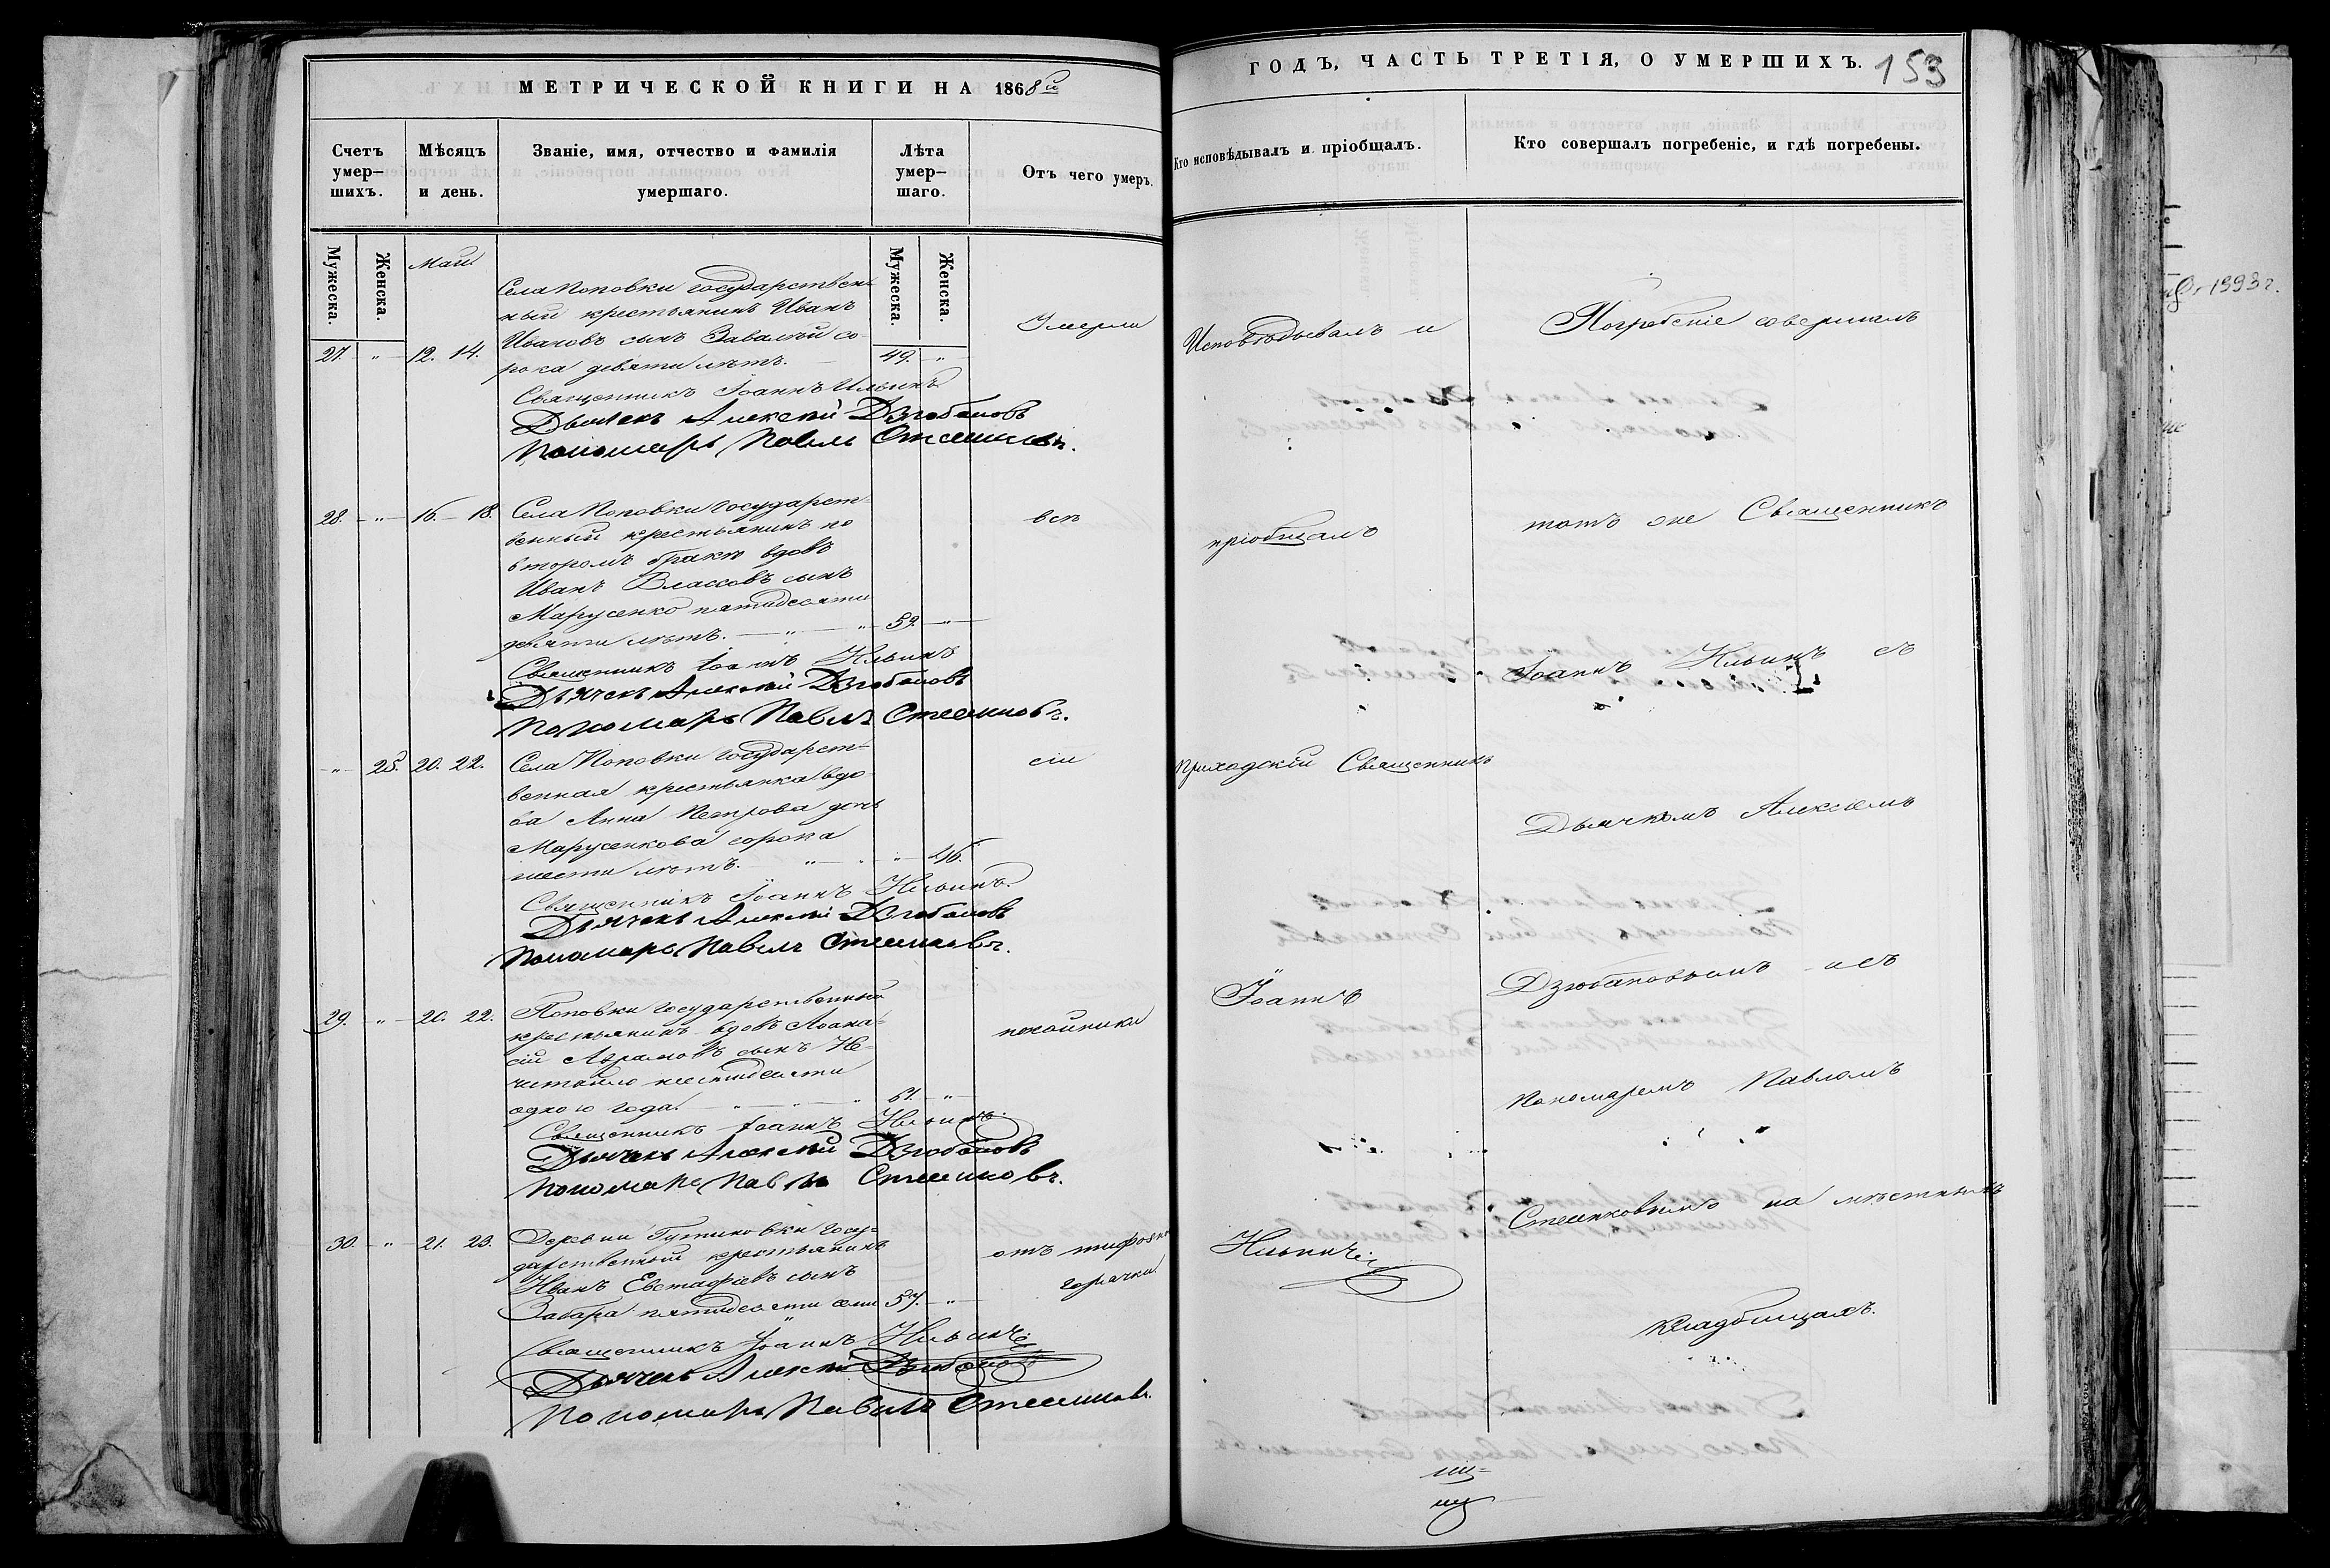 МЕТРИЧЕСКОЙ КНИГИ НА 1868й
Счетъ умер-шихъ.
Мѣсяцъ и день.
Званіе, имя, отчество и фамилія умершаго.
Лѣта умер-шаго.
Отъ чего умеръ.
Мужеска.
Женска.
Мужеска.
Женска.
Май.
27. " 12. 14.
Села Поповки государствен
ный крестьянинъ Иванъ
Ивановъ сынъ Завалѣй со-
рока девяти лѣтъ. 49. "
Священникъ Іоаннъ Ильинъ
Дьячекъ Алексѣй Дзюбановъ
Пономарь Павелъ Стешковъ.
Умерли
28. " 16. 18.
Села Поповки государст-
венный крестьянинъ по
второмъ бракѣ вдовъ
Иванъ Власовъ сынъ
Марусенко пятидесяти
девяти лѣтъ. " " 59. "
Священникъ Іоаннъ Ильинъ
Дьячекъ Алексѣй Дзюбановъ
Пономарь Павелъ Стешковъ.
всѣ
" 25. 20. 22.
Села Поповки государст-
венная крестьянка вдо-
ва Анна Петрова дочь
Марусенкова сорока
шести лѣтъ. " " 46.
Священникъ Іоаннъ Ильинъ.
Дьячекъ Алексѣй Дзюбановъ
Пономарь Павелъ Стешковъ.
сіи
29. " 20. 22.
Поповки государственный
крестьянинъ вдовъ Афана-
сій Аврамовъ сынъ Не-
шестидесяти
одного года. " " " 61. "
Священникъ Іоаннъ Ильинъ.
Дьячекъ Алексѣй Дзюбановъ
Пономарь Павелъ Стешковъ.
покойники
30. " 21. 23.
Деревни Гутировки госу-
дарственный крестьянинъ
Иванъ Евстафіевъ сынъ
Забара пятидесяти семи 57. "
Священникъ Іоаннъ Ильинъ
Дьячекъ Алексѣй Дзюбановъ
Пономарь Павелъ Стешковъ.
отъ тифозн
горячки.
ГОДЪ, ЧАСТЬ ТРЕТІЯ, О УМЕРШИХЪ. 153
Кто исповѣдывалъ и пріобщалъ.
Кто совершалъ погребеніе, и гдѣ погребены.
Исповѣдывалъ и
пріобщалъ
приходскій Священникъ
Іоаннъ
Ильинъ
Погребеніе совершалъ
тотъ же Священникъ
Іоаннъ Ильинъ съ
Дьячкомъ Алексѣемъ
Дзюбановымъ и съ
Пономаремъ Павломъ
Стешковымъ на мѣстныхъ
кладбищахъ.
1993 г.